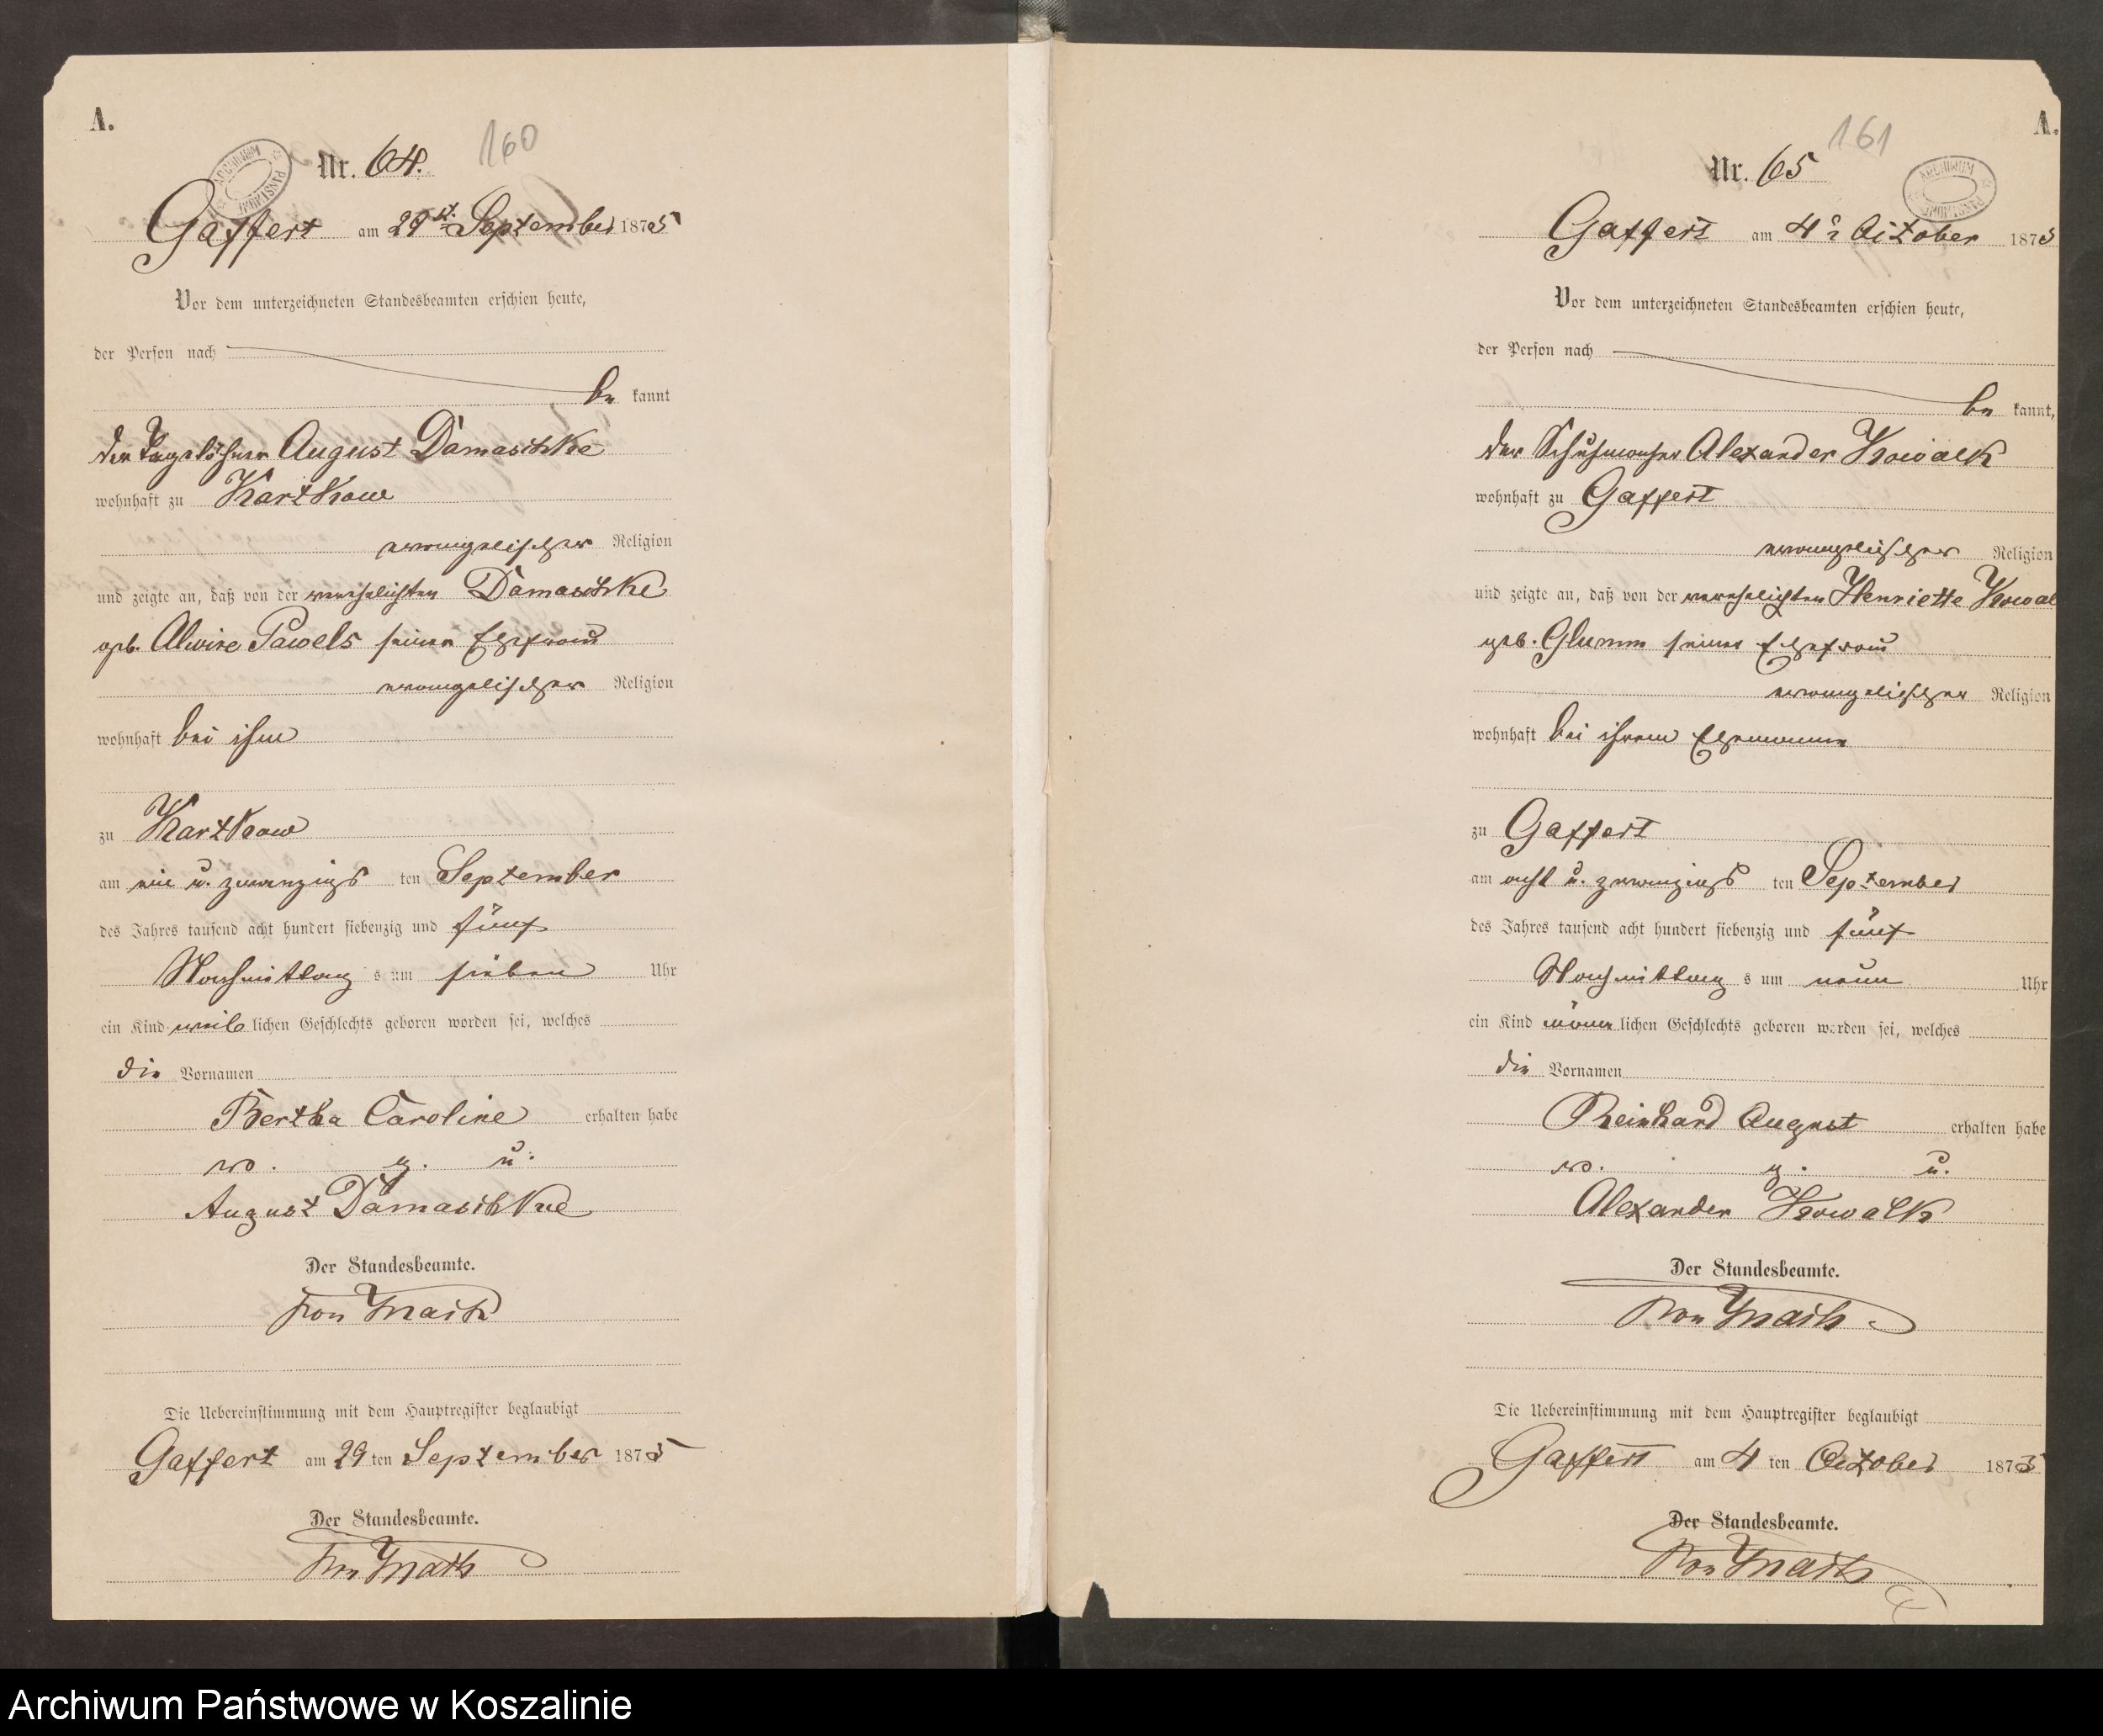 A.
160
Nr. 64.
ARCHIWUM PAŃSTWOWE
Gaffert am 29st. September 1875
Vor dem unterzeichneten Standesbeamten erschien heute,
der Person nach
be kannt
der Tagelöhner August Damaschke
wohnhaft zu Kartkow
evangelischer Religion
und zeigte an, daß von der verehelichten Damaschke
geb. Alwine Pawels seiner Ehefrau
evangelischer Religion
wohnhaft bei ihm
zu Kartkow
am ein u. zwanzigs ten September
des Jahres tausend acht hundert siebenzig und fünf
Nachmittag s um sieben Uhr
ein Kind weib lichen Geschlechts geboren worden sei, welches
die Vornamen
Bertha Caroline erhalten habe
v. g. u.
August Damaschke
Der Standesbeamte.
von
Die Uebereinstimmung mit dem Hauptregister beglaubigt
Gaffert am 29 ten September 1875
Der Standesbeamte.
von
A.
161
Nr. 65
ARCHIWUM PAŃSTWOWE
Gaffert am 4t October 1875
Vor dem unterzeichneten Standesbeamten erschien heute,
der Person nach
be kannt,
der Schuhmacher Alexander Kowalk
wohnhaft zu Gaffert
evangelischer Religion
und zeigte an, daß von der verehelichten Henriette Kowal
geb. Glumm seiner Ehefrau
evangelischer Religion
wohnhaft bei ihrem Ehemanne
zu Gaffert
am acht u. zwanzigs ten September
des Jahres tausend acht hundert siebenzig und fünf
Nachmittag s um neun Uhr
ein Kind männ lichen Geschlechts geboren worden sei, welches
die Vornamen
Reinhard August erhalten habe
v. g. u.
Alexander Kowalk
Der Standesbeamte.
von
Die Uebereinstimmung mit dem Hauptregister beglaubigt
Gaffert am 4 ten October 1875
Der Standesbeamte.
von
Archiwum Państwowe w Koszalinie